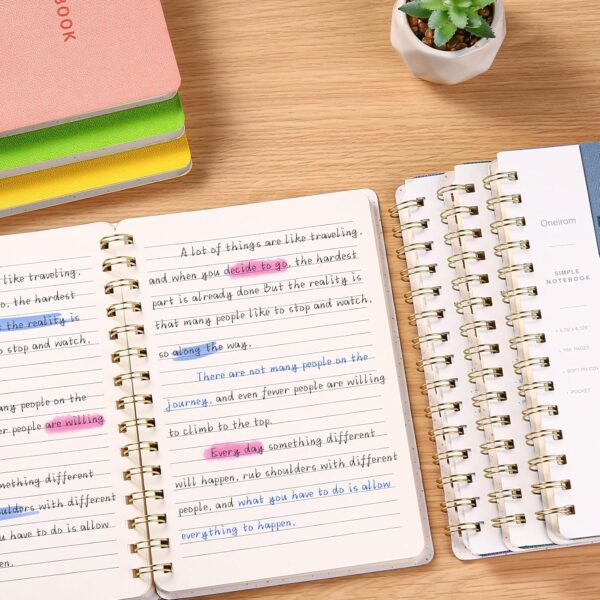 BOOK
like traveling,
o, the hardest
t the reality is
o stop and watch,
any people on the
er people are willing
mething different
oulders with different
ou have to do is allow
en.
A lot of things are like traveling,
and when you decide to go, the hardest
part is already done But the reality is
that many people like to stop and watch,
so along the way.
There are not many people on the
journey, and even fewer people are willing
to climb to the top.
Every day something different
will happen, rub shoulders with different
people, and what you have to do is allow
everything to happen.
Oneirom
SIMPLE
NOTEBOOK
PAGES
SOFT PU COV
POCKET